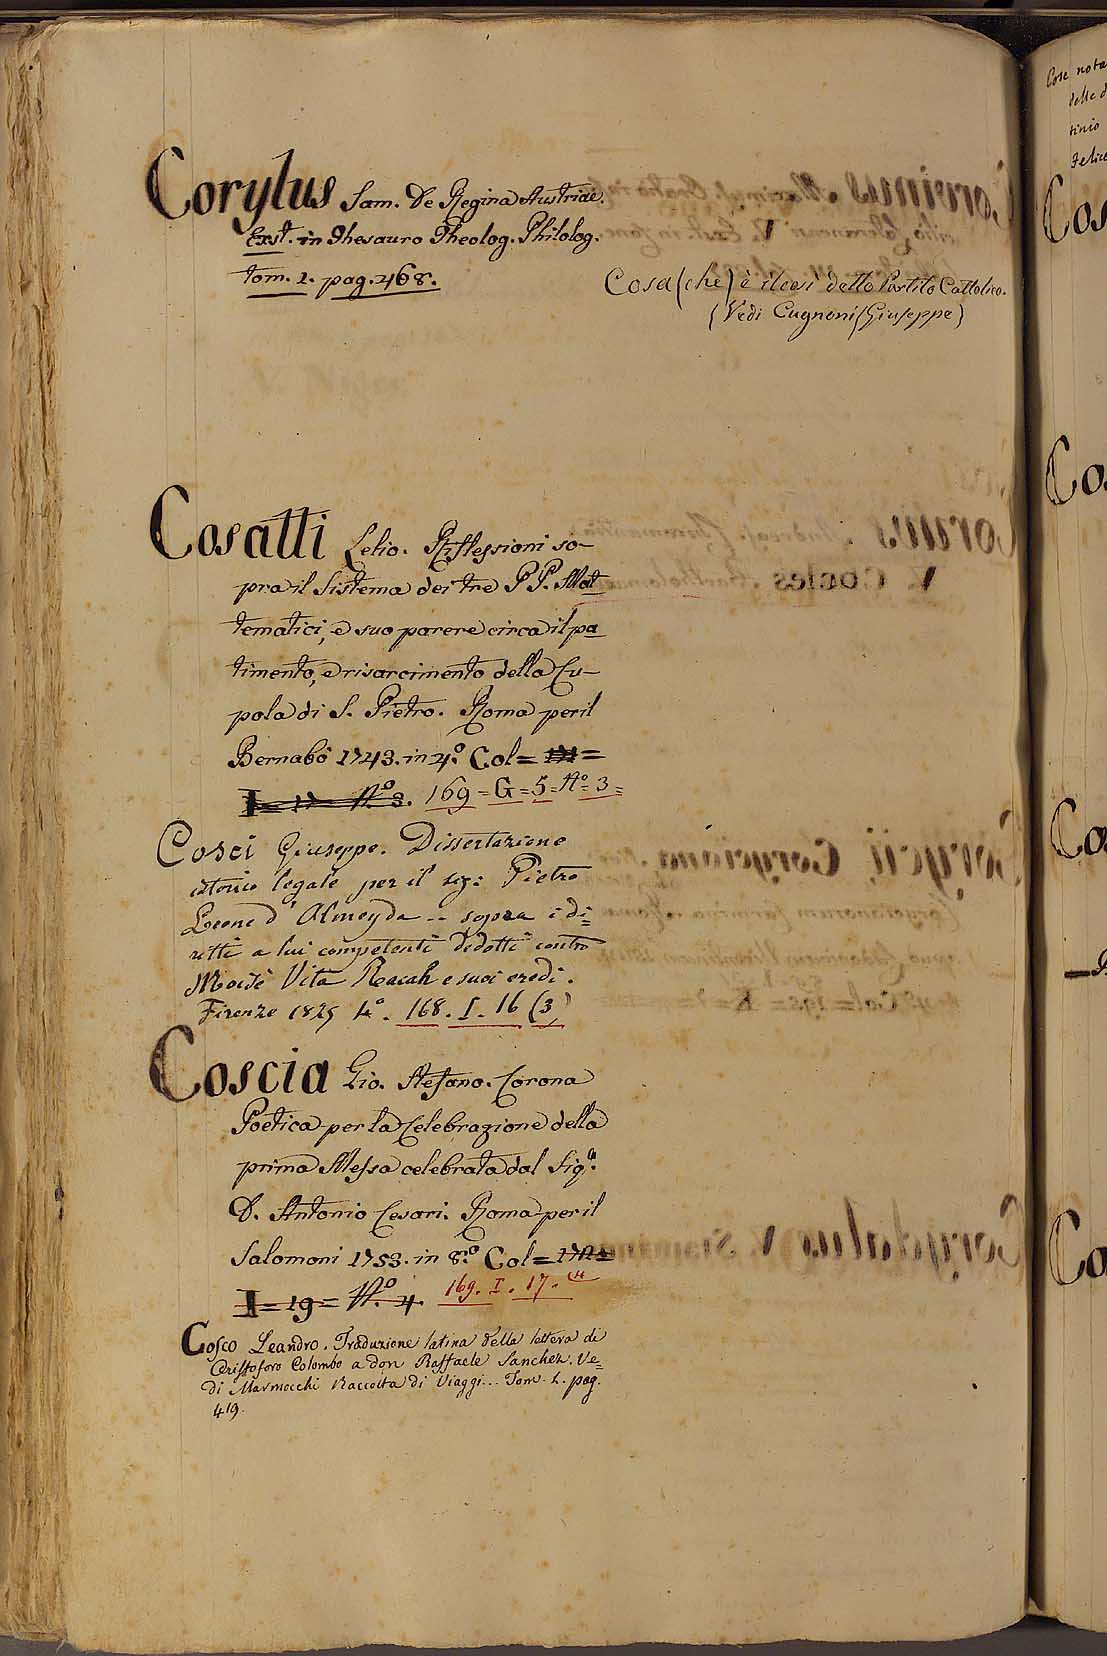 Corylus Sam. De Regina Austriae.
Exst. in Thesauro Theolog. Philolog.
tom. 1. pag. 468.
Cosa (che) è il così detto Partito Cattolico.
(Vedi Cugnoni (Giuseppe)
Cosatti Lelio. Riflessioni so-
pra il Sistema dei tre P P. Mat
tematici, e suo parere circa il pa
timento, e risarcimento della Cu-
pola di S. Pietro. Roma per il
Bernabò 1743. in 4.º Col =
N.º 3. 169 = G = 5 = Nº 3 =
Cosci Giuseppe. Dissertazione
istorico legale per il sig: Pietro
Leone d'Almeyda -- sopra i di=
ritti a lui competenti dedotti contro
Moisè Vita Racah e suoi eredi.
Firenze 1825 4º. 168. I. 16 (3)
Coscia Gio. Stefano. Corona
Poetica per la Celebrazione della
prima Messa celebrata dal Sigr.
D. Antonio Cesari. Roma per il
Salomoni 1753. in 8.º Col =
I = 19 = N.º 4. 169. I. 17.
Cosco Leandro. Traduzione latina della lettera di
Cristoforo Colombo a don Raffaele Sanchez. Ve=
di Marmocchi Raccolta di Viaggi... Tom. 1. pag.
419.
Cose nota
delle d
tinio
Felice
Cos
Cos
Co
Co